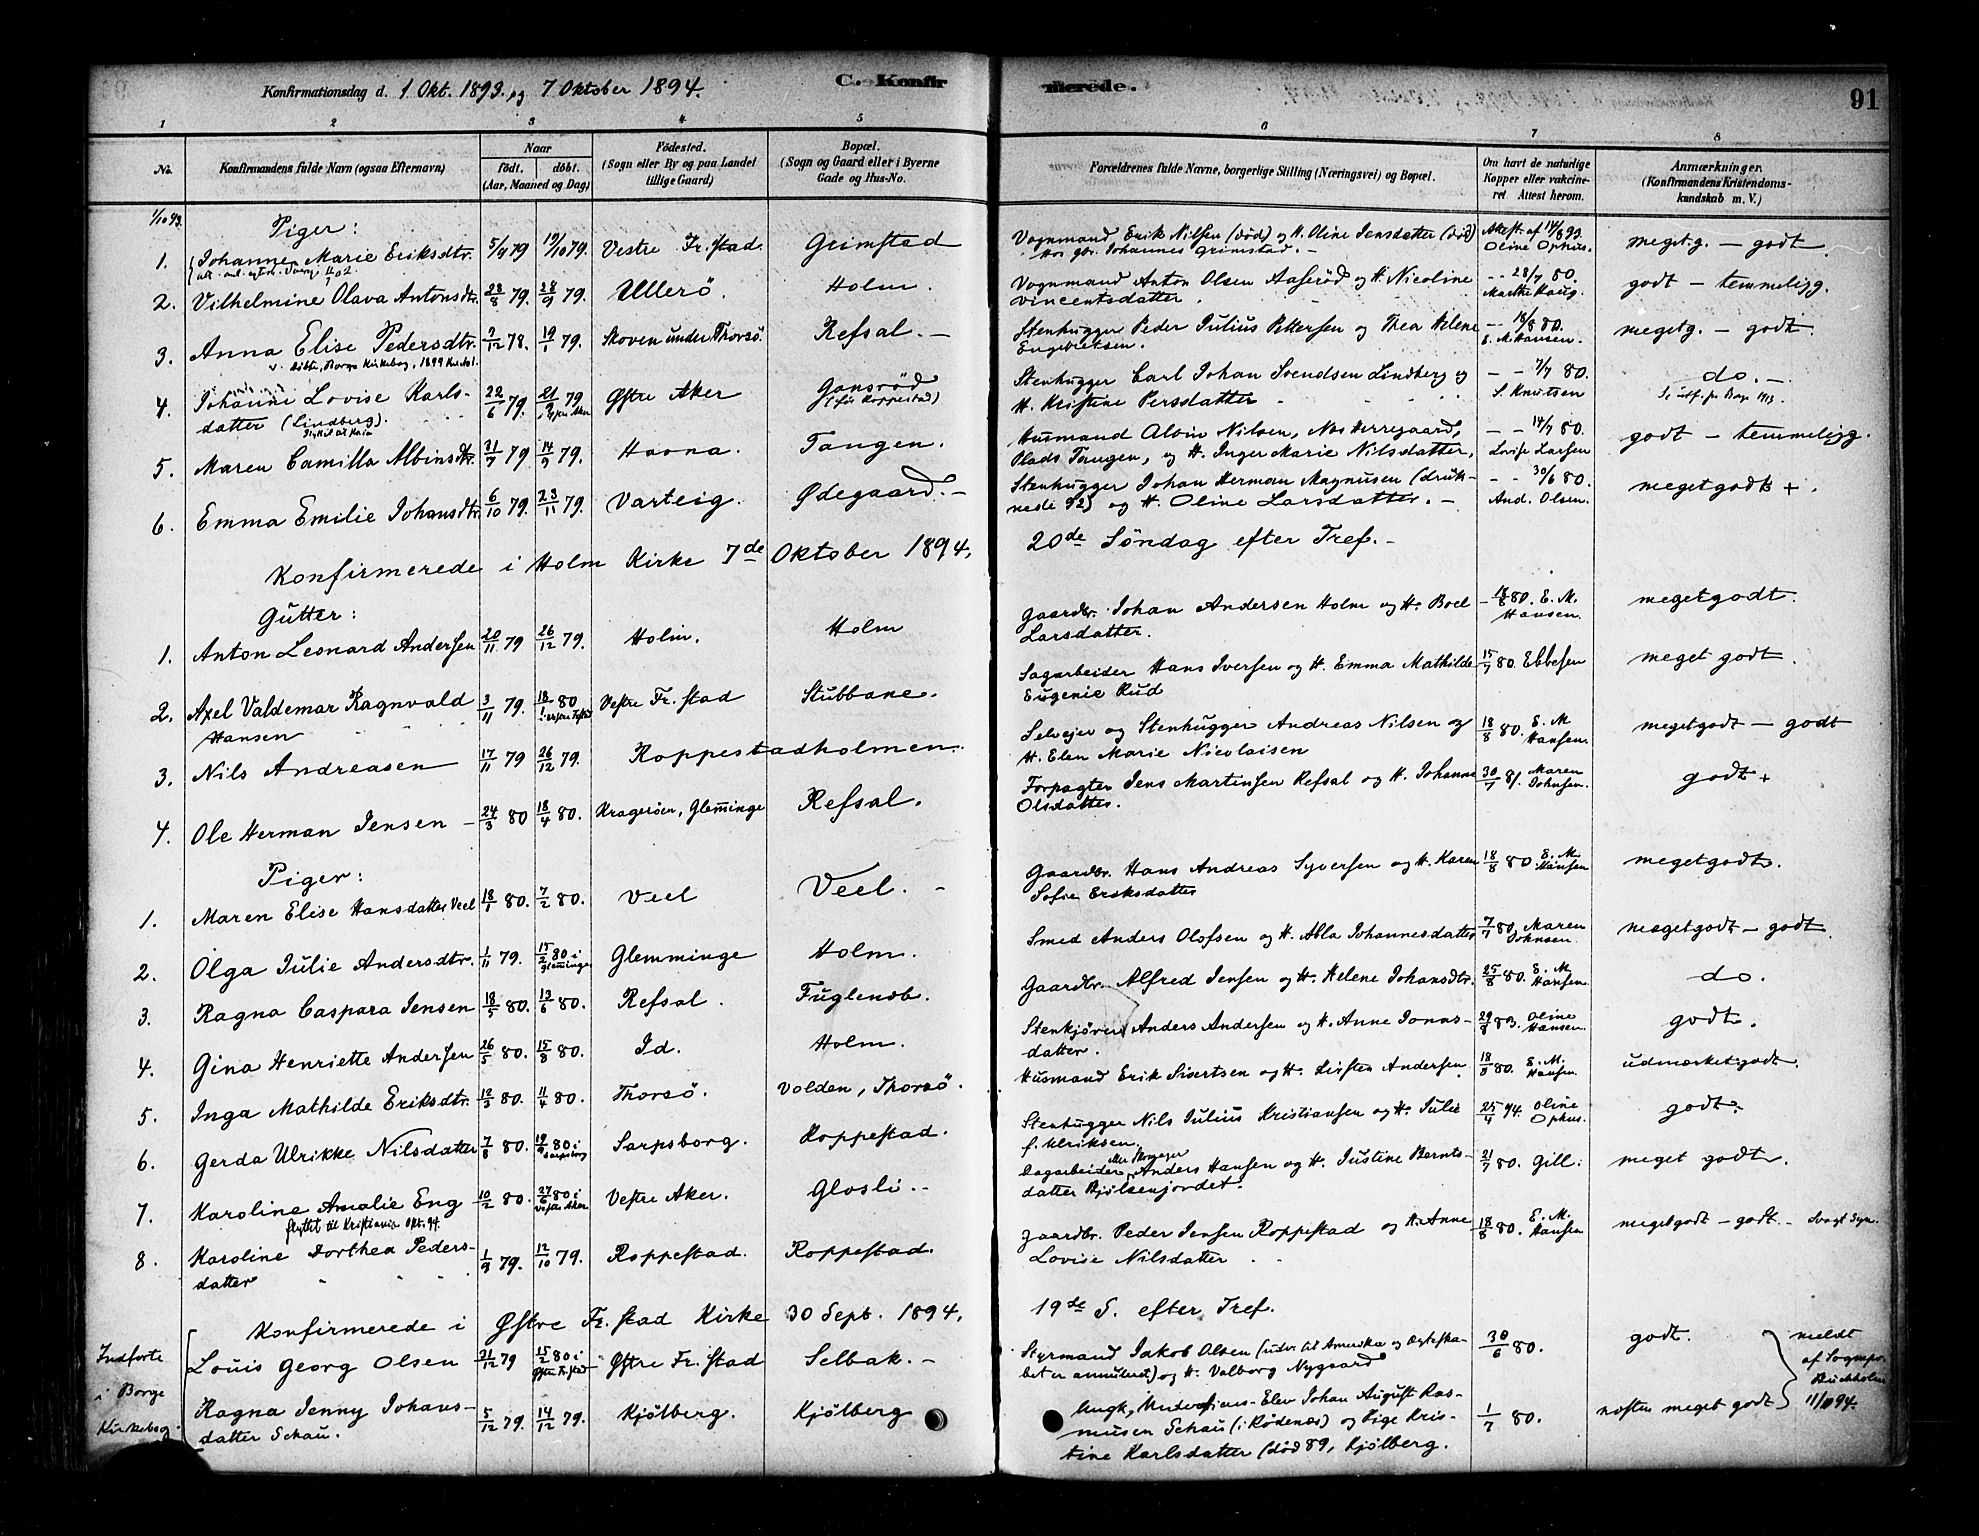 Konfirmationsdag d. 1 Okt. 1893. og 7 Oktober 1894. C. Konfir
merede. 91
1 2 3 4 5 6 7 8
No. Konfirmandens fulde Navn (ogsaa Efternavn) Naar født. døbt. (Aar, Maaned og Dag) Fødested. (Sogn eller By og paa Landet tillige Gaard) Bopæl. (Sogn og Gaard eller i Byerne Gade og Hus-No. Forældrenes fulde Navne, borgerlige Stilling (Næringsvei) og Bopæl. Om havt de naturlige Kopper eller vakcineret Attest herom. Anmærkninger. (Konfirmandens Kristendomskundskab m. V.)
1/10 93. Piger:
1. Johanne Marie Eriksdtr. 5/9 79 19/10 79. Vestre Fr.stad. Grimstad Vognmand Erik Nilsen (død) og H. Oline Jensdatter (død) Hos gbr. Johannes Grimstad. Oline Ophus. meget g. – godt.
2. Vilhelmine Olava Antonsdtr. 23/8 79. 28/9 79. Ullerö. Holm. Vognmand Anton Olsen Aaserød og H. Nicoline Vincentsdatter. 28/7 80. Marthe Haug. godt – temmelig g.
3. Anna Elise Pedersdtr. 7/12 78. 19/1 79. Skoven under Thorsö. Refsal. – Stenhugger Peder Julius Pettersen og Thea Helene Engebretsen. 18/8 80. E. M. Hansen. meget g. – godt
4. Johanne Lovise Karlsdatter (Lindberg). 22/6 79. 21/9 79. Østre Aker Gansrød (før Roppestad) Stenhugger Carl Johan Svendsen Lindberg og H. Kristine Persdatter 7/7 80. S. Knutsen do. –
5. Maren Camilla Albinsdtr. 31/7 79 14/9 79. Havna. Tangen. Husmand Albin Nilsen, Nes Herregaard, Plads Tangen, og H. Inger Marie Nilsdatter, 14/7 80. Lovise Larsen godt – temmelig g.
6. Emma Emilie Johansdtr. 6/10 79. 23/11 79. Varteig. Ødegaard. – Stenhugger Johan Herman Magnusen (druknede 92) og H. Oline Larsdatter. – 30/6 80. And. Olsen. meget godt +.
Konfirmerede i Holm Kirke 7de Oktober 1894, 20de Söndag efter Tref. –
Gutter:
1. Anton Leonard Andersen 20/11 79 26/12 79. Holm. Holm Gaardbr. Johan Andersen Holm og H. Boel Larsdatter. 18/8 80. E. M. Hansen. meget godt.
2. Axel Valdemar Ragnvald Hansen 3/11 79. 18/1 80 Vestre Fr.stad Stubbane. Sagarbeider Hans Iversen og H. Emma Mathilde Eugenie Rud 15/7 80. Ebbesen meget godt.
3. Nils Andreasen 17/11 79 26/12 79. Roppestadholmen. Selveier og Stenhugger Andreas Nilsen og H. Elen Marie Nicolaisen 18/8 80. E. M Hansen. meget godt – godt
4. Ole Herman Jensen – 24/3 80 18/4 80. Kragerøen, Glemminge Refsal. Forpagter Jens Martinsen Refsal og H. Johanne Olsdatter. 30/7 81. Maren Johnsen. godt +
Piger:
1. Maren Elise Hansdatter Veel 18/1 80. 7/2 80. Veel Veel. – Gaardbr. Hans Andreas Syversen og H. Karen Sofie Eriksdatter 18/8 80 E. M. Hansen meget godt.
2. Olga Julie Andersdtr. 1/11 79. 15/2 80 i Glemminge Glemminge Holm. Smed Anders Olofsen og H. Abla Johannesdatter 7/7 80. Maren Johnsen. meget godt – godt.
3. Ragna Caspara Jensen 18/5 80. 13/6 80. Refsal. Fuglenæb. Gaardbr. Alfred Jensen og H. Helene Johansdtr. 25/8 80. E. M. Hansen. do.
4. Gina Henriette Andersen 26/5 80. 15/8 80. Id. Holm. Stenkjører Anders Andersen og H. Anne Jonasdatter. Oline Hansen. godt.
5. Inga Mathilde Eriksdtr. 12/3 80. 11/4 80. Thorsö. Volden, Thorsö. Husmand Erik Sivertsen og H. Kirsten Andersen 18/8 80. E. M. Hansen. udmærket godt.
6. Gerda Ulrikke Nilsdatter 7/8 80. 19/9 80 i Sarpsborg Sarpsborg. Roppestad. Stenhugger Nils Julius Kristiansen og H. Julie f. Ulriksen. 25/4 94. Oline Ophus. godt.
7. Karoline Amalie Eng 10/2 80. 27/6 80 i Vestre Aker Vestre Aker. Glosli. – Dagarbeider Anders Hansen og H. Justine Berntsdatter Bjølsenjordet. 21/7 80. Gill: meget godt.
flyttet til Kristiania Okt. 94.
8. Karoline Dorthea Pedersdatter 1/9 79. 12/10 79. Roppestad. Roppestad. Gaardbr. Peder Jensen Roppestad og H. Anne Lovise Nilsdatter 18/8 80. E. M. Hansen meget godt – godt – Svagt Syn.
Konfirmerede i Østre Fr.stad Kirke 30 Sept. 1894, 19de S. efter Tref.
Indførte i Borge Kirkebog. Louis Georg Olsen 21/12 79 15/2 80 i Østre Fr.stad Østre Fr.stad Selbak. – Styrmand Jakob Olsen (udv. til Amerika og Ægteskabet er annulleret) og H. Valborg Nygaard 30/6 80. godt. meldt af Sognepr. Buchholm 11/10 94.
Ragna Jenny Johansdatter Schau. 5/12 79. 14/12 79. Kjölberg. Kjölberg Ungk, Underofficers-Elev Johan August Rasmusen Schau (i Rødenæs) og Pige Kristine Karlsdatter (død 89, Kjölberg. 1/7 80. næsten meget godt